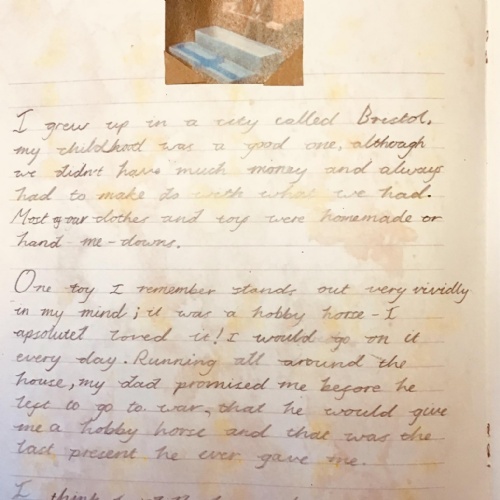 I grew up in a city called Bristol,
my childhood was a good one, although
we didn't have much money and always
had to make do with what we had.
Most of our clothes and toy were homemade or
hand-me-downs.
One toy I remember stands out very vividly
in my mind; it was a hobby horse - I
apsolutel loved it! I would go on it
every day. Running all around the
house, my dad promised me before he
left to go to war, that he would give
me a hobby horse and that was the
last present he ever gave me.
I think